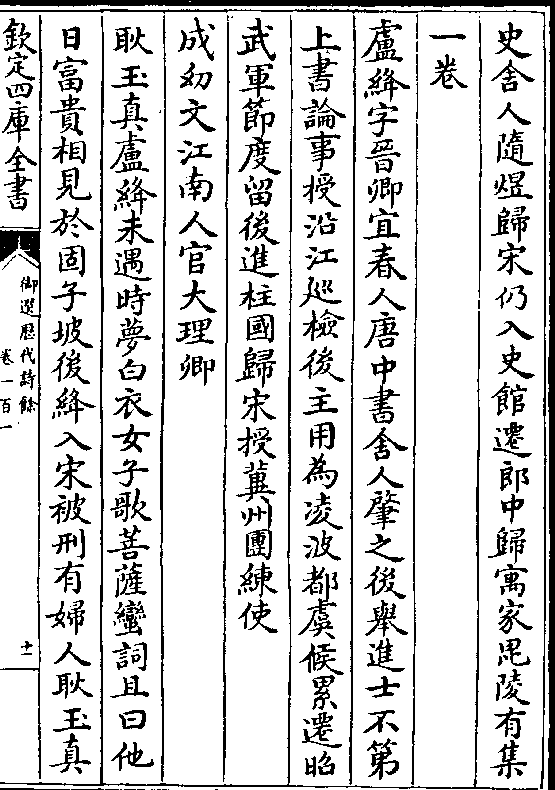 史舍人隨煜歸宋仍入史館遷郎中歸寓家毘陵有集
一卷
盧絳字晉卿宜春人唐中書舍人肇之後舉進士不第
上書論事授沿江廵檢後主用為凌波都虞候累遷昭
武軍節度留後進柱國歸宋授冀州團練使
成㓜文江南人官大理卿
耿玉真盧絳未遇時夢白衣女子歌菩薩蠻詞且曰他
日富貴相見於固子坡後絳入宋被刑有婦人耿玉真
欽定四庫全書
御選歷代詩餘
卷一百一
十一